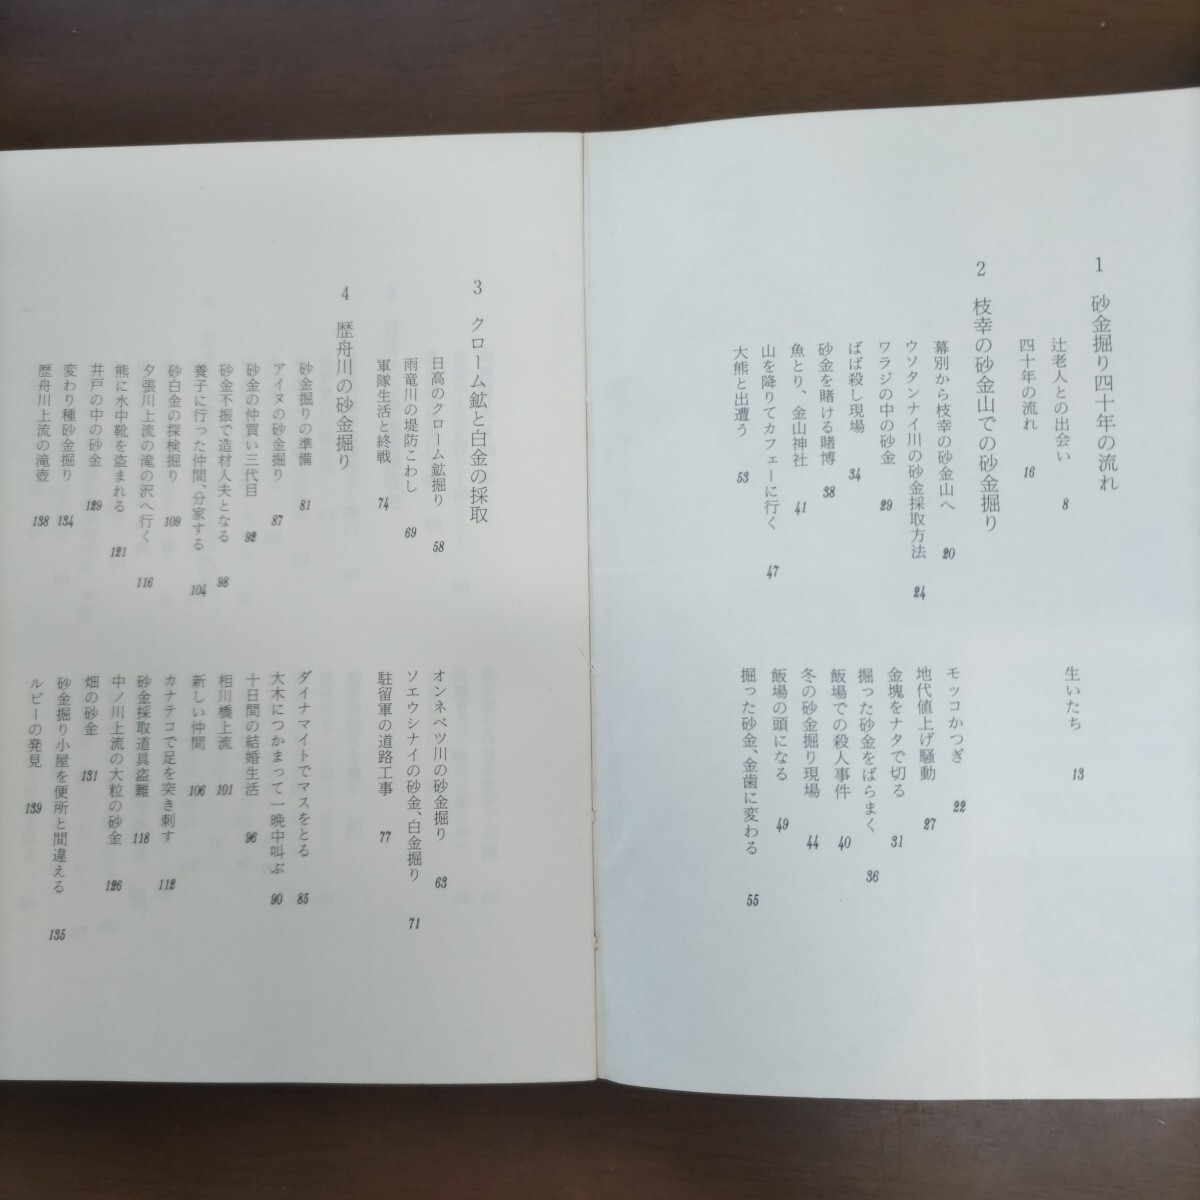 1 砂金掘り四十年の流れ
辻老人との出会い 8
生いたち 13
四十年の流れ 16
2 枝幸の砂金山での砂金掘り
幕別から枝幸の砂金山へ 20
モッコかつぎ 22
ウソタンナイ川の砂金採取方法 24
地代値上げ騒動 27
ワラジの中の砂金 29
金塊をナタで切る 31
ばば殺し現場 34
掘った砂金をばらまく 36
砂金を賭ける賭博 38
飯場での殺人事件 40
魚とり、金山神社 41
冬の砂金掘り現場 44
山を降りてカフェーに行く 47
飯場の頭になる 49
大熊と出遭う 53
掘った砂金、金歯に変わる 55
3 クローム鉱と白金の採取
日高のクローム鉱掘り 58
オンネベツ川の砂金掘り 63
雨竜川の堤防こわし 69
ソエウシナイの砂金、白金掘り 71
軍隊生活と終戦 74
駐留軍の道路工事 77
4 歴舟川の砂金掘り
砂金掘りの準備 81
ダイナマイトでマスをとる 85
アイヌの砂金掘り 87
大木につかまって一晩中叫ぶ 90
砂金の仲買い三代目 92
十日間の結婚生活 96
砂金不振で造材人夫となる 98
相川橋上流 101
養子に行った仲間、分家する 104
新しい仲間 106
砂白金の探検掘り 109
カナテコで足を突き刺す 112
夕張川上流の滝の沢へ行く 116
砂金採取道具盗難 118
熊に水中靴を盗まれる 121
中ノ川上流の大粒の砂金 126
井戸の中の砂金 129
畑の砂金 131
変わり種砂金掘り 134
砂金掘り小屋を便所と間違える 135
歴舟川上流の滝壺 138
ルビーの発見 139